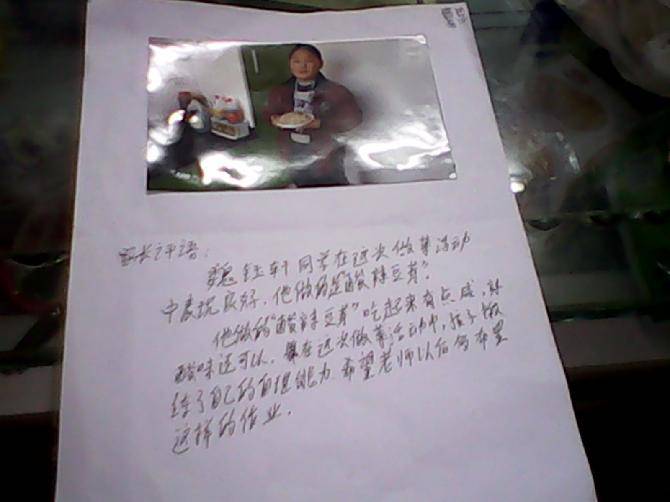 家长评语：
魏钰轩同学在这次做菜活动
中表现良好，他做的是“酸辣豆芽”
他做的“酸辣豆芽”吃起来有点咸，辣
酸味还可以，在这次做菜活动中，孩子锻
练了自己的自理能力，希望老师以后多布置
这样的作业。